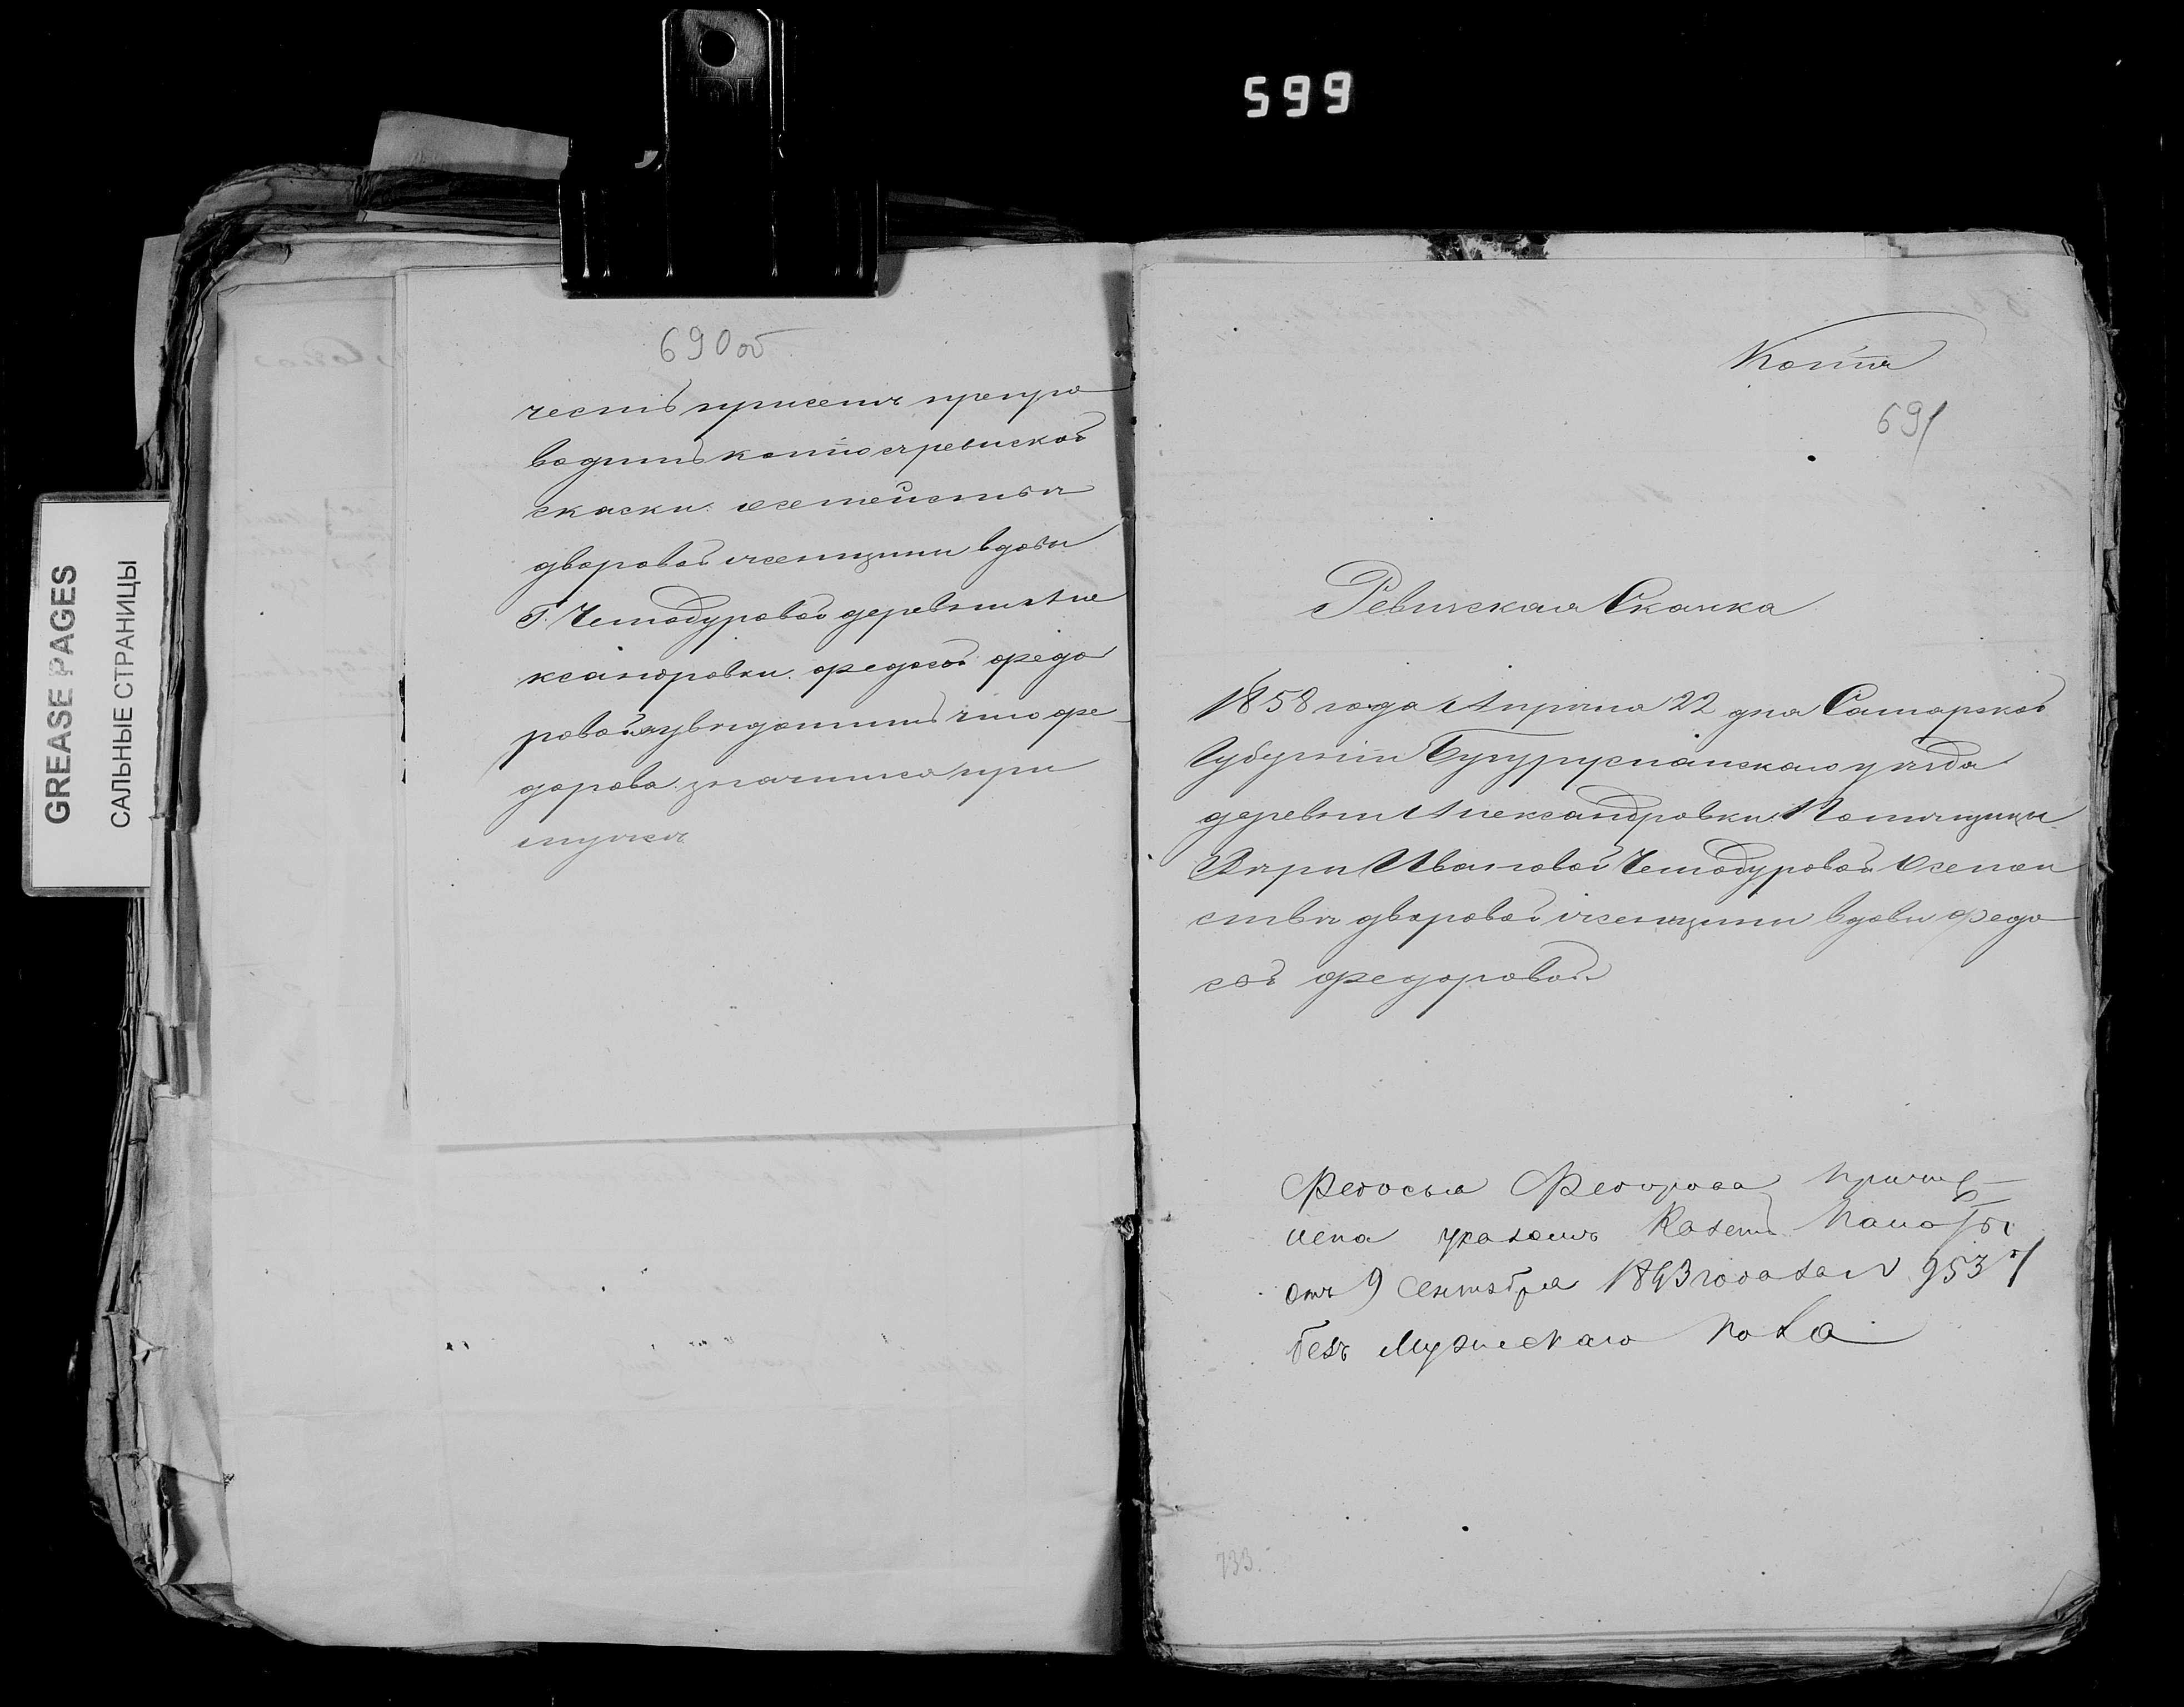 599
GREASE PAGES
САЛЬНЫЕ СТРАНИЦЫ
690об
честь при семъ препро
водить копію съ ревиской
скаски о семействѣ
дворовой женщины вдовы
Г. Чемодуровой деревни Але
ксандровки Федосьи Федо
ровой и увѣдомить что Фе-
дорова значится при
мужѣ
Копія
691
Ревиская Скаска
1858 года Апрѣля 22 дня Самарской
Губерніи Бугурусланскаго уѣзда
деревни Александровки Помѣщицы
Вѣры Ивановой Чемодуровой О семей
ствѣ дворовой женщины вдовы Федо
сьи Федоровой
Федосья Федорова причис-
лена указомъ Казен. Палаты
отъ 9 Сентября 1863 года за № 9537
безъ Мужескаго пола
733.